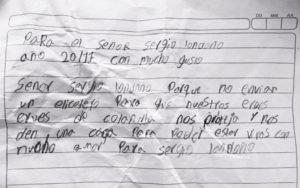 DD MM AA
Para el señor sergio londono
año 2017 con mucho gusto
Señor sergio londono Porque no enviar
un Para que nuestros eroes
eroes de colombia nos proteja y nos
den una casa Para Poder estar con
mucho amor Para sergio londono